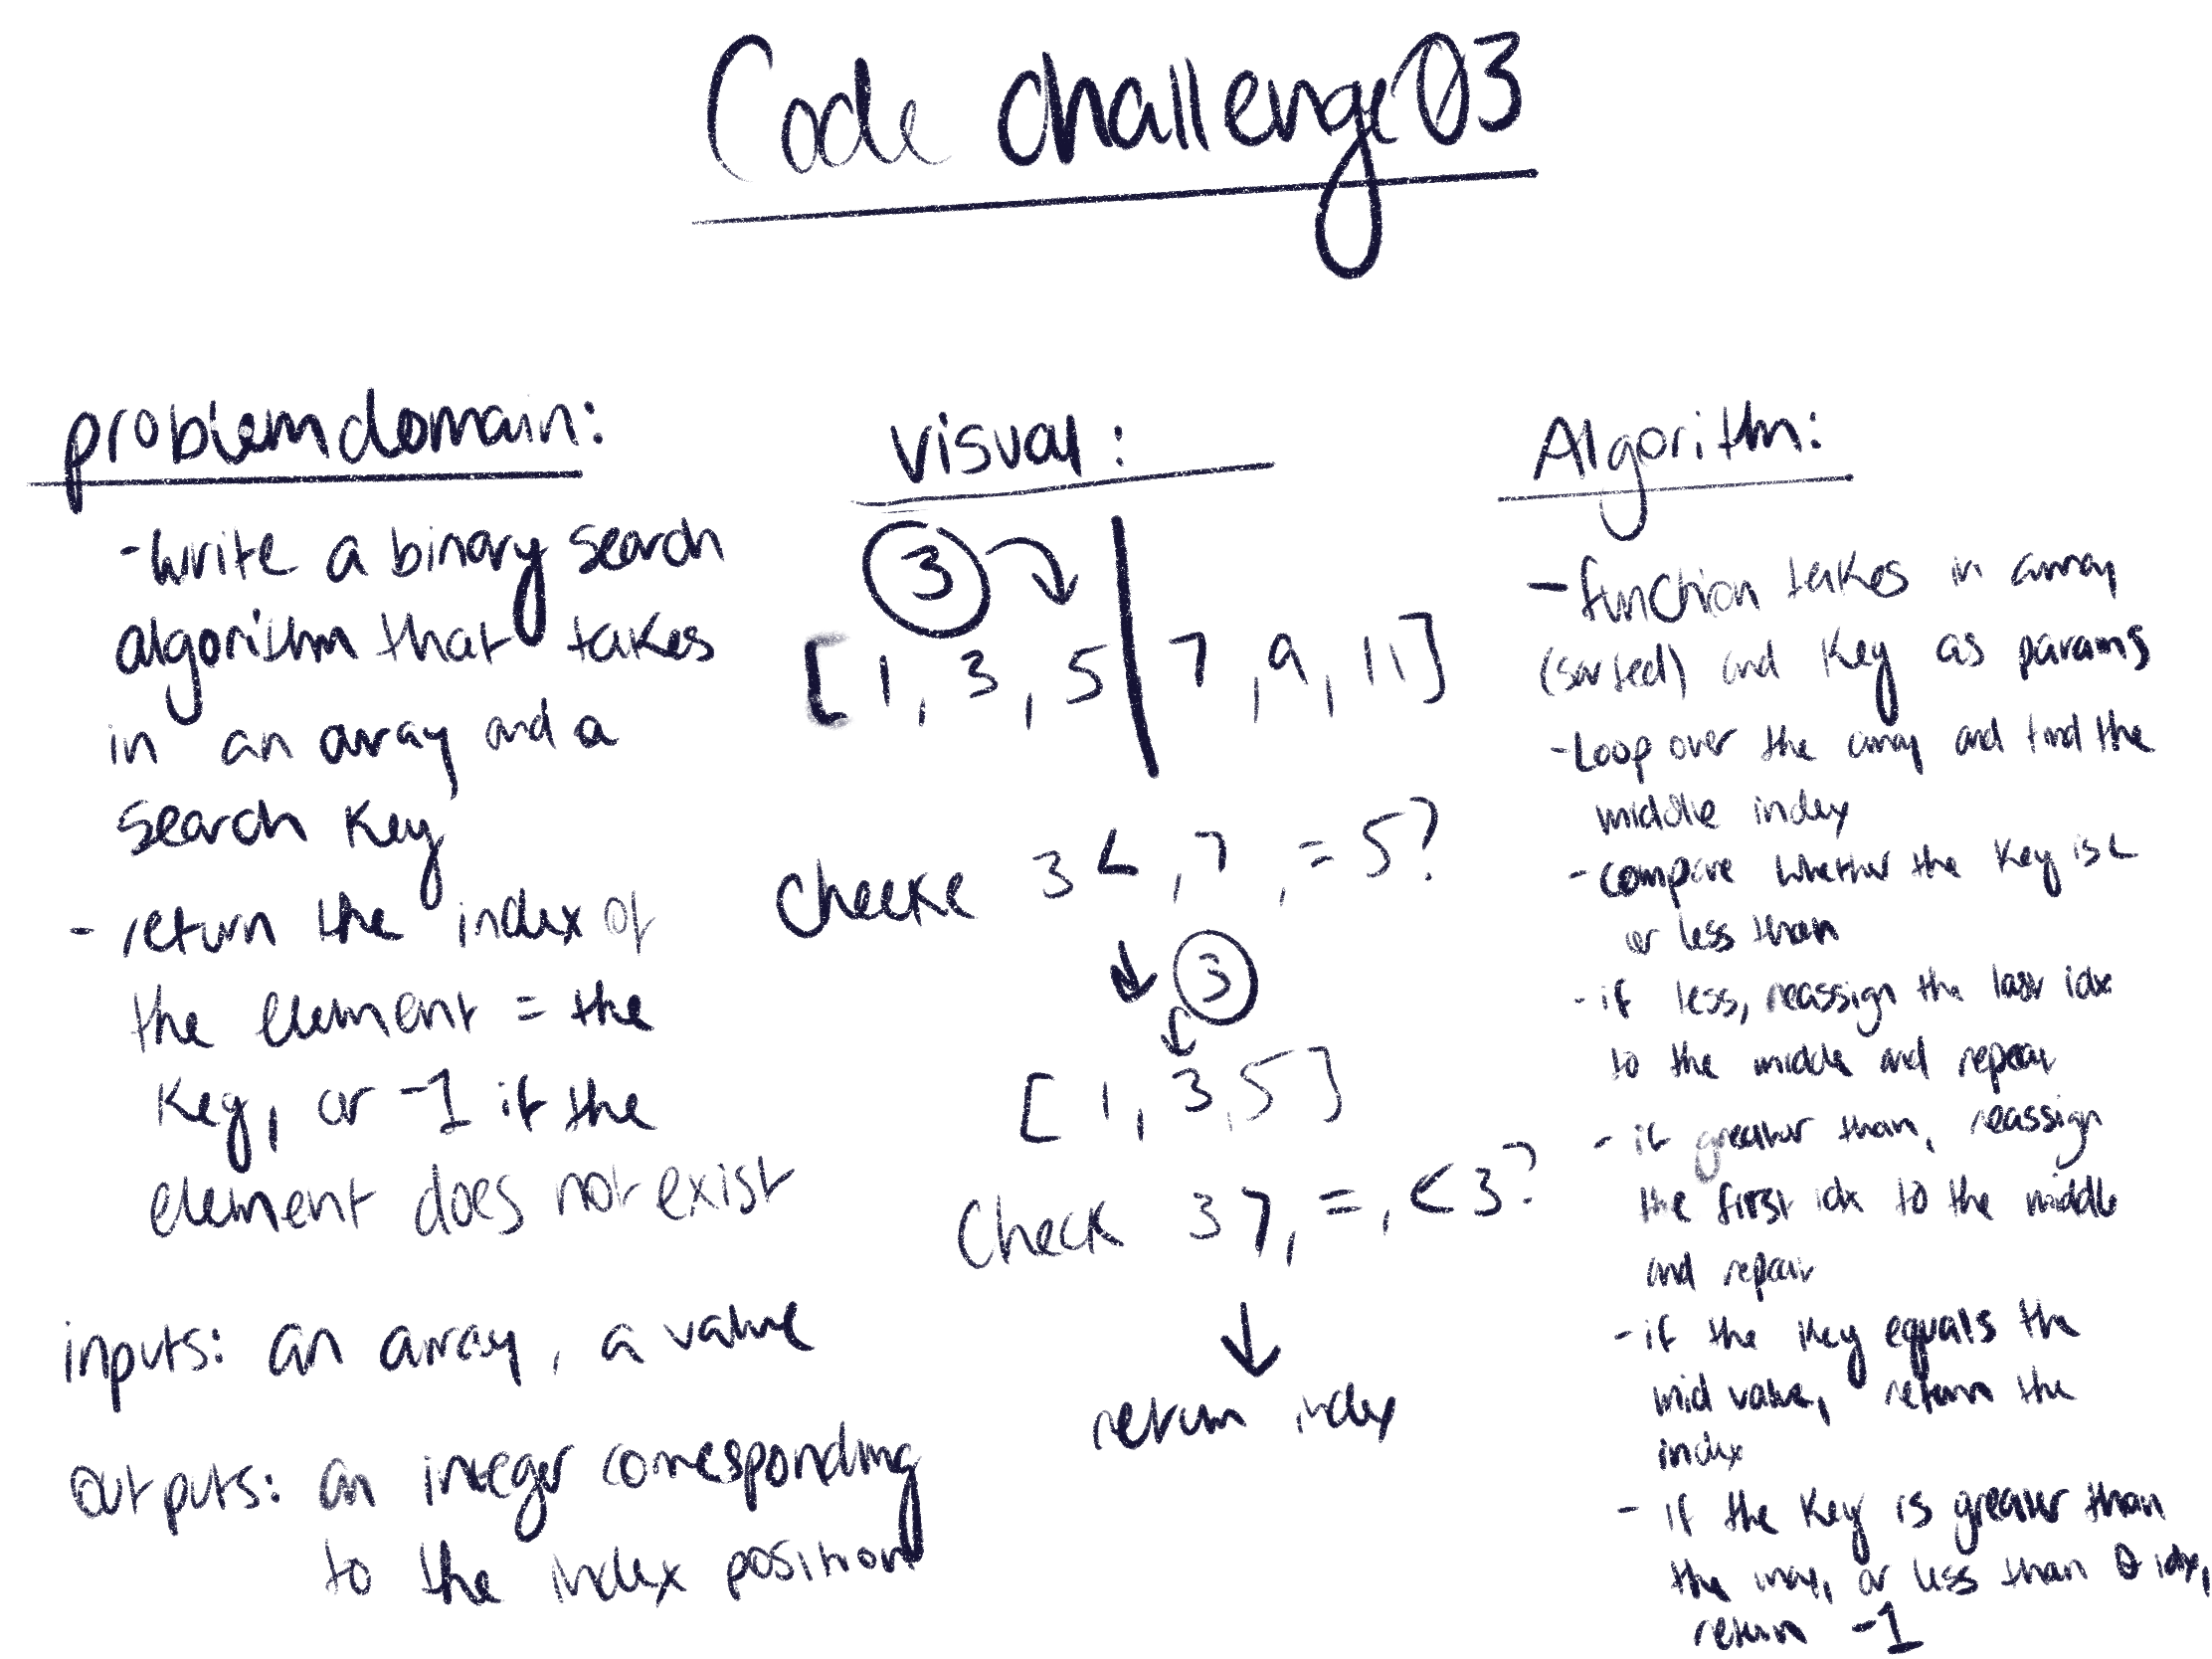 Code challenge 03
problem domain:
- write a binary search
algorithm that takes
in an array and a
search key
- return the index of
the element = the
key, or -1 if the
element does not exist
inputs: an array, a value
outputs: an integer corresponding
to the index position
visual:
3
[ 1, 3, 5 | 7, 9, 11 ]
cheeke 3 <, >, = 5?
3
[ 1, 3, 5 ]
check 3 >, =, < 3?
return index
Algorithm:
- function takes in array
(sorted) and key as params
- Loop over the array and find the
middle index
- compare whether the key is <
or less than
- if less, reassign the last idx
to the middle and repeat
- if greater than, reassign
the first idx to the middle
and repeat
- if the key equals the
mid value, return the
index
- if the key is greater than
the or less than 0 idx,
return -1